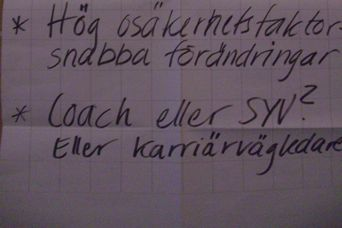 * Hög osäkerhetsfaktor-
snabba förändringar
* Coach eller SYV?
Eller karriärvägledare